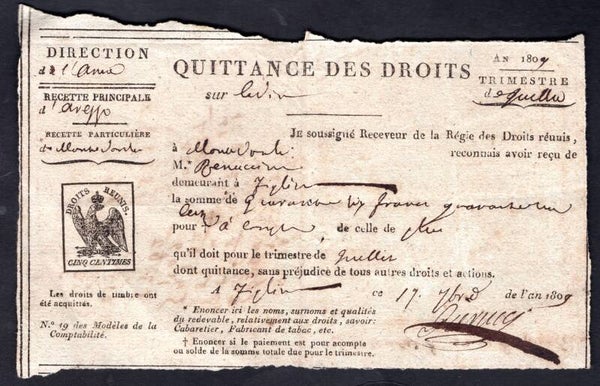 DIRECTION
de l'Arno
RECETTE PRINCIPALE
d'Arezzo
RECETTE PARTICULIÈRE
de
DROITS RÉUNIS.
CINQ CENTIMES
Les droits de timbre ont
été acquittés.
N.º 19 des Modèles de la
Comptabilité.
QUITTANCE DES DROITS
sur le vin
AN 1809
TRIMESTRE
de Juillet
JE soussigné Receveur de la Régie des Droits réunis,
à
reconnais avoir reçu de
M.*
demeurant à
la somme de quarante six francs quarante
pour à compte de celle de plus
qu'il doit pour le trimestre de Juillet
dont quittance, sans préjudice de tous autres droits et actions.
A ce 17 7bre de l'an 1809
* Enoncer ici les noms, surnoms et qualités
du redevable, relativement aux droits, savoir:
Cabaretier, Fabricant de tabac, etc.
† Enoncer si le paiement est pour acompte
ou solde de la somme totale due pour le trimestre.